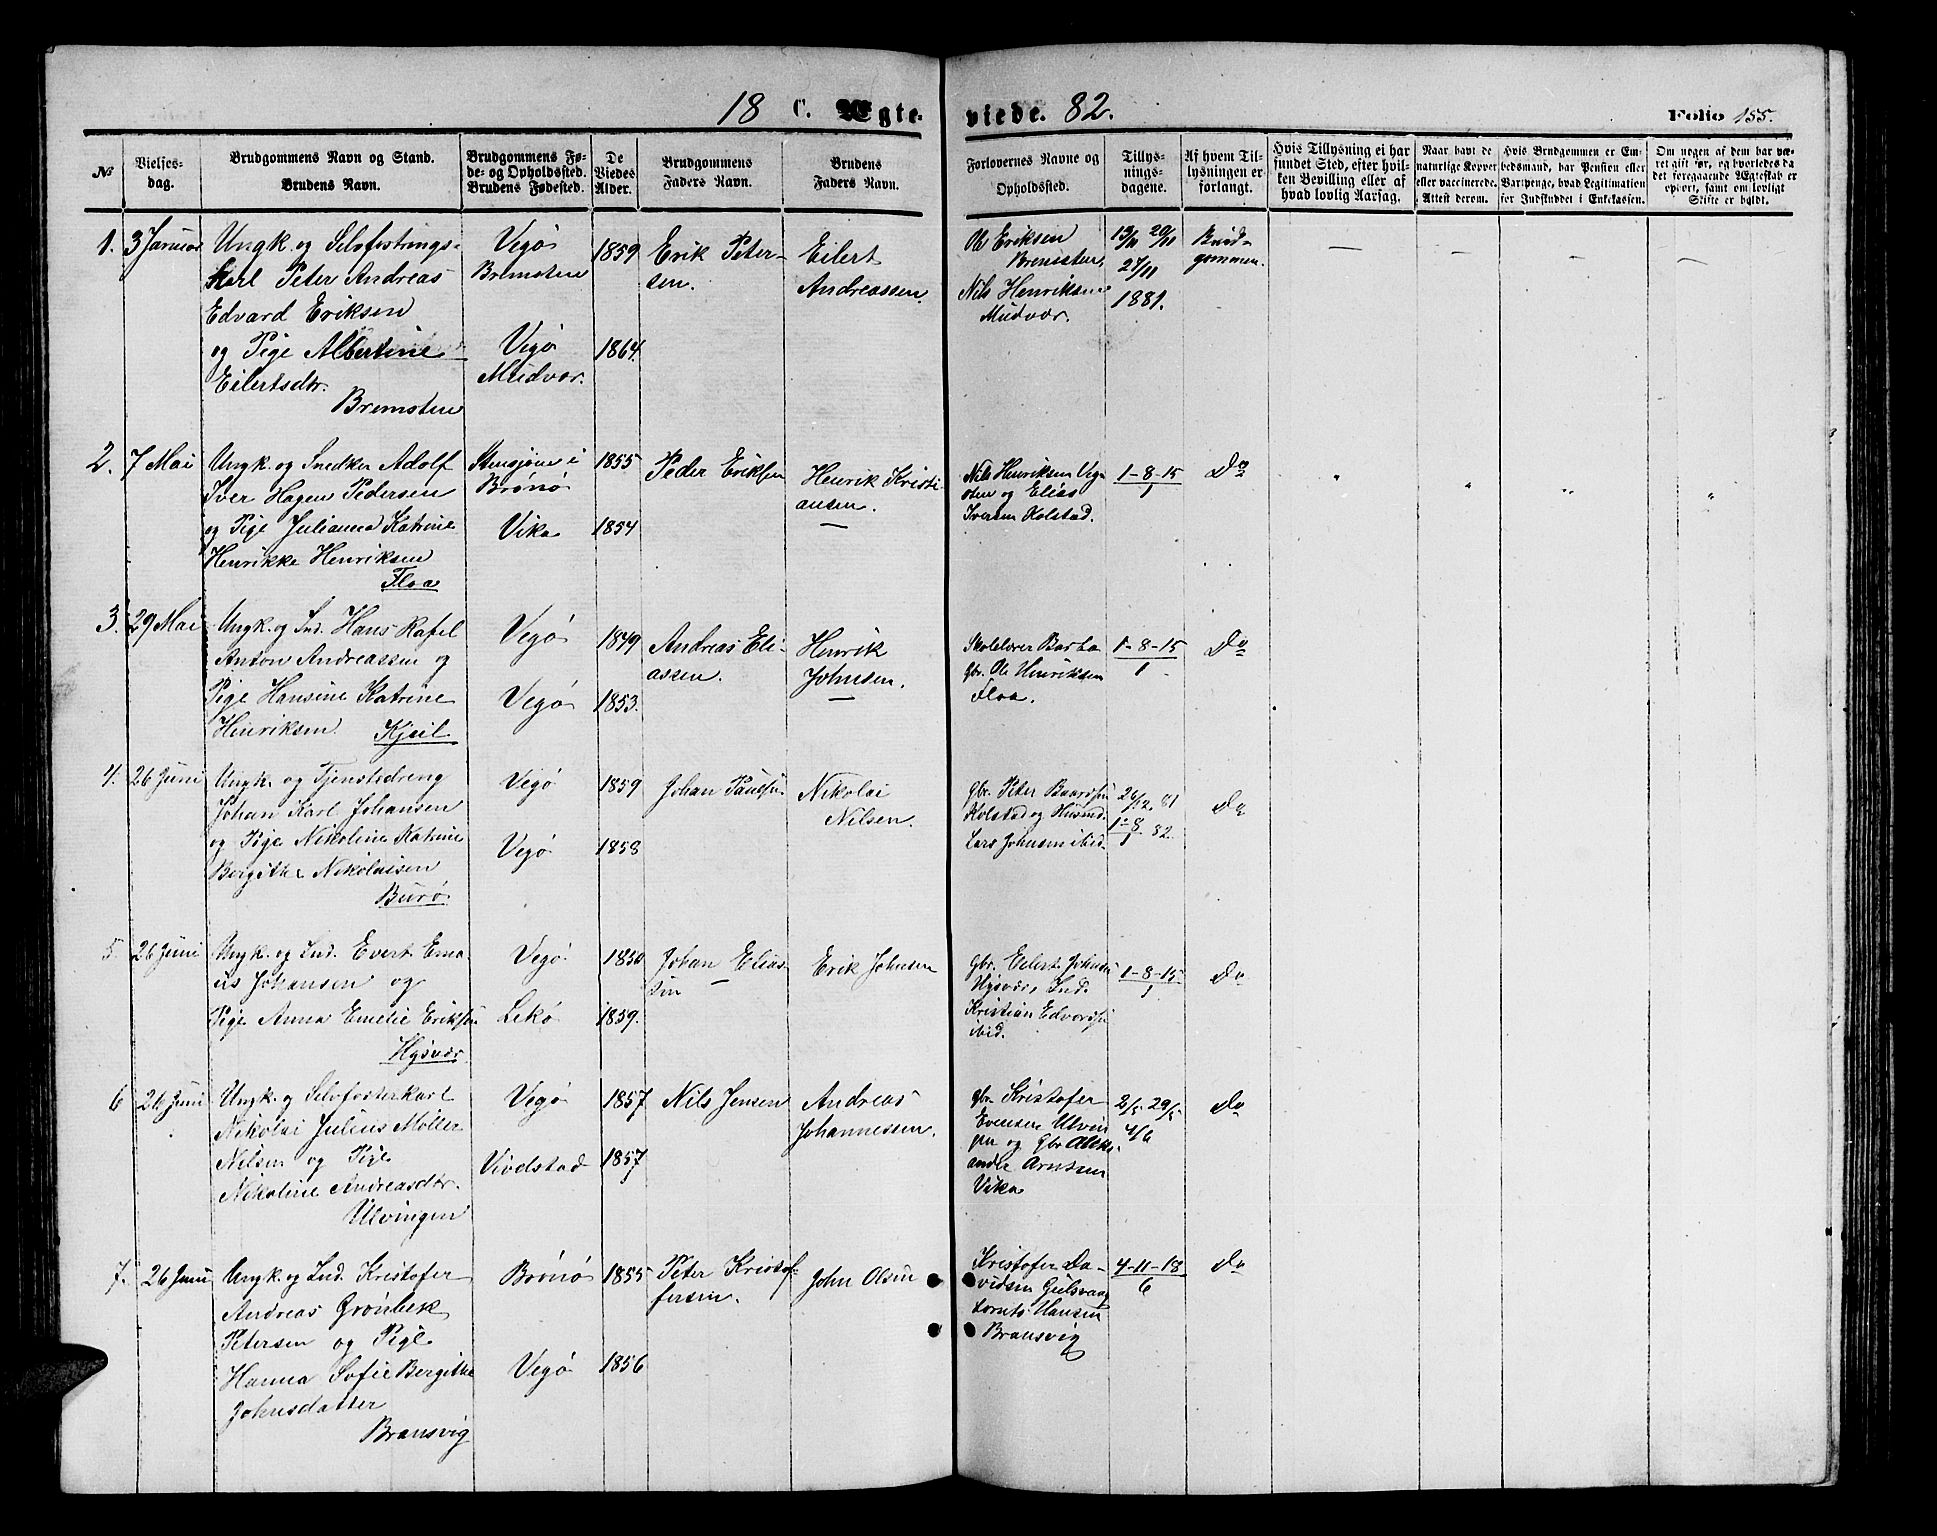 18 C. Ægteviede. 82. Folio 155.
№
Vielsesdag.
Brudgommens Navn og Stand.
Brudens Navn.
Brudgommens Føde- og Opholdssted.
Brudens Fødested.
De Viedes Alder.
Brudgommens Faders Navn.
Brudens Faders Navn.
Forlovernes Navne og Opholdssted.
Tillysningsdagene.
Af hvem Tillysningen er forlangt.
Hvis Tillysning ei har fundet Sted, efter hvilken Bevilling eller af hvad lovlig Aarsag.
Naar havt de naturlige Kopper eller vaccinerede. Attest derom.
Hvis Brudgommen er Embedsmand, har Pension eller Vartpenge, hvad Legitimation for Indskuddet i Enkekassen.
Om nogen af dem har været gift før, og hvorledes da det foregaaende Ægteskab er ophørt, samt om lovligt Skifte er holdt.
1. 3 Januar
Ungk. og Selvfostrings-
Karl Peter Andreas
Edvard Eriksen
og Pige Albertine
Eilertsdtr.
Bremsten
Vegø
Bremsten
Vegø
Mudvær.
1859
1864.
Erik Peter-
sen.
Eilert
Andreassen.
Ole Eriksen
Bremsten,
Nils Henriksen
Mudvær.
13/11 20/11
27/11
1881.
Brud-
gommen.
— — — —
2. 7 Mai
Ungk. og Snedker Adolf
Iver Hagen Pedersen
og Pige Julianna Katrine
Henrikke Henriksen
Floa
Stensjøen i
Brønø
Vika
1855
1854
Peder Eriksen
Henrik Kristi-
ansen.
Nils Henriksen Veg-
sten og Elias
Iversen Kolstad.
1-8-15
1
Do
" " " "
3. 29 Mai
Ungk. og Ind. Hans Rafel
Anton Andreassen og
Pige Hansine Katrine
Henriksen Kjeil
Vegø
Vegø
1849
1853.
Andreas Eli-
assen.
Henrik
Johnsen.
Skolelærer Barta
Gbr. Ole Henriksen
Floa.
1-8-15
1
Do
4. 26 Juni
Ungk. og Tjenestedreng
Johan Karl Johansen
og Pige Nikoline Katrine
Bergithe Nikolaisen
Burø
Vegø
Vegø
1859
1858
Johan Paulsen
Nikolai
Nilsen.
Gbr. Peter Baardsen
Kolstad og Husmd.
Lars Johnsen ibid.
26/12. 81
1-8 82.
1
Do
5. 26 Juni
Ungk. og Ind. Evert Ema-
us Johansen og
Pige Anna Emelie Eriksen
Hysvær
Vegø
Lekø
1850
1859.
Johan Elias-
sen
Erik Johnsen
Gbr. Eilert Johnsen
Hysvær, Ind.
Kristian Edvardsen
ibid.
1-8-15
1
Do
6 26 Juni
Ungk. og Selvfosterkarl
Nikolai Julius Møller
Nilsen og Pige
Nikoline Andreasdtr.
Ulvingen
Vegø
Vivelstad
1857
1857
Nils Jensen
Andreas
Johannessen.
Gbr. Kristofer
Evensen Ulvin-
gen og Gbr. Aleks-
ander Arntsen
Vika
2/5 29/5
4/6
Do
7. 26 Juni
Ungk. og Ind. Kristofer
Andreas Grønbek
Petersen og Pige
Hanna Sofie Bergithe
Johnsdatter
Bransvig
Brønø
Vegø
1855
1856
Peter Kristof-
fersen.
John Olsen
Kristofer Da-
vidsen Gulsvaag
Lornts Hansen
Bransvig
4-11-18
6
Do